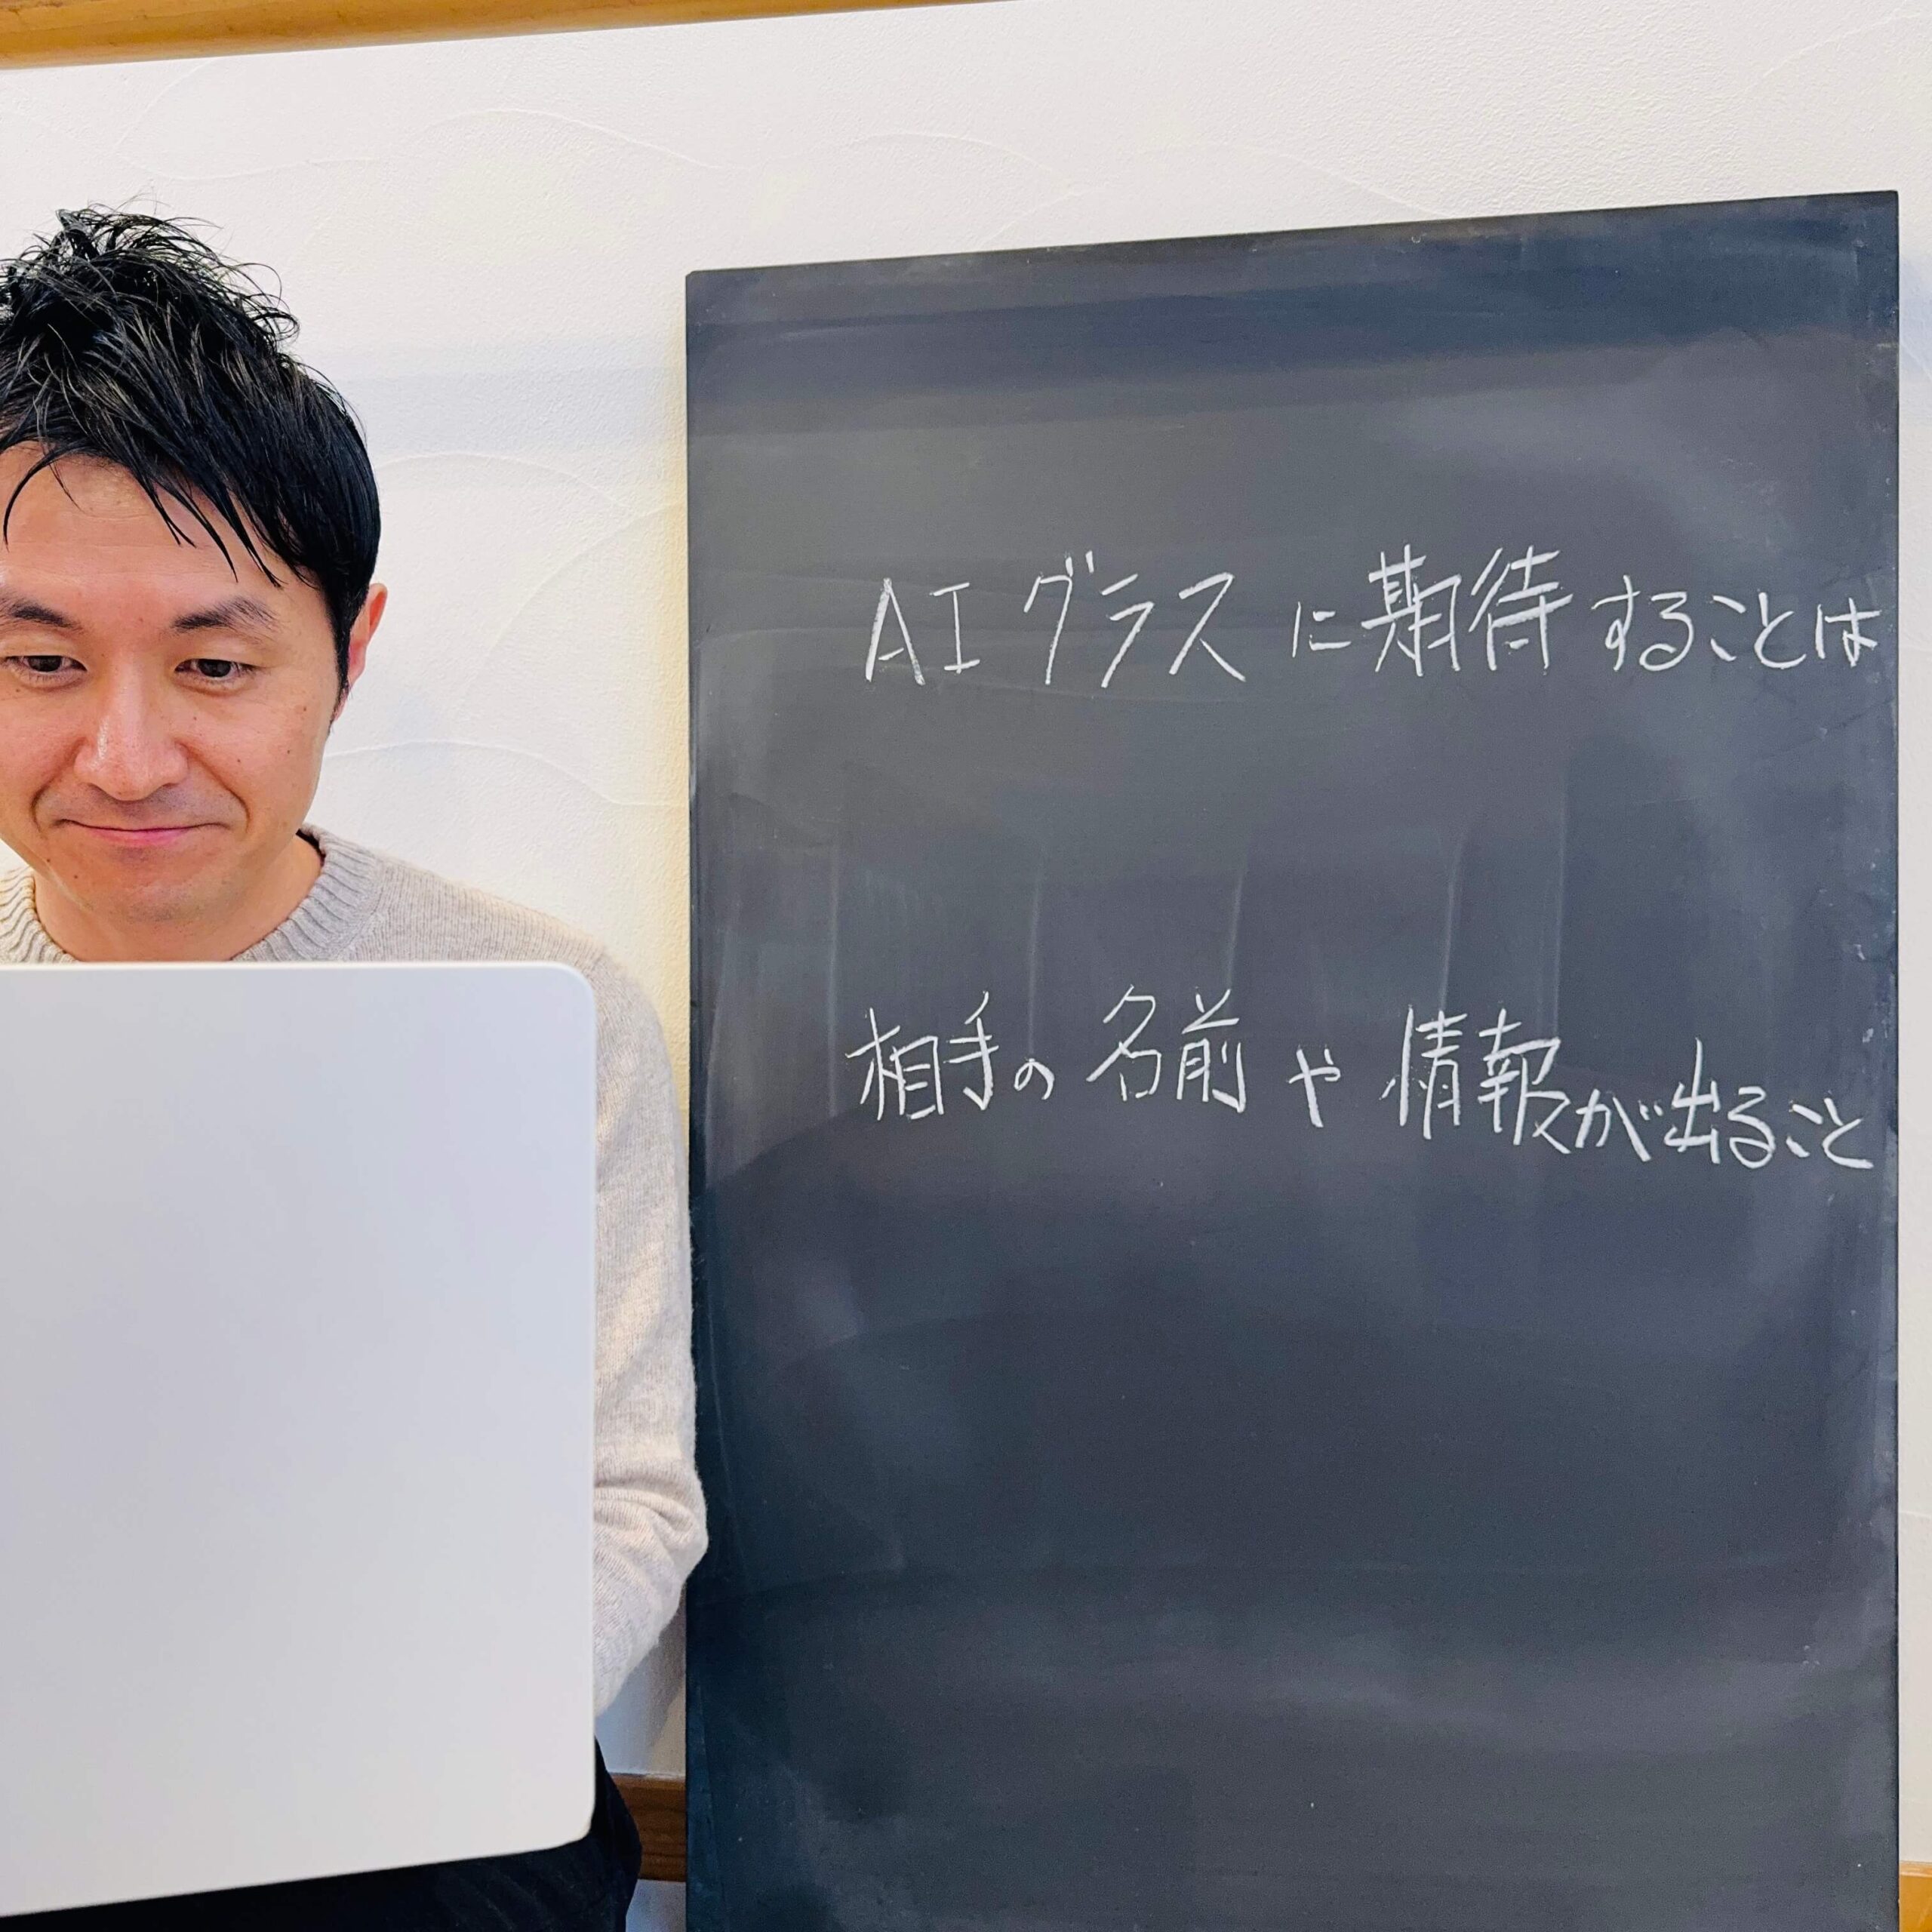 AIグラスに期待することは
相手の名前や情報が出ること